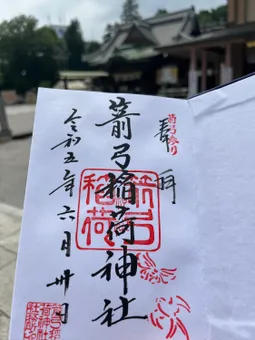 奉拝
箭弓参り
箭弓稲荷神社
箭弓
稲荷
令和五年六月卅日